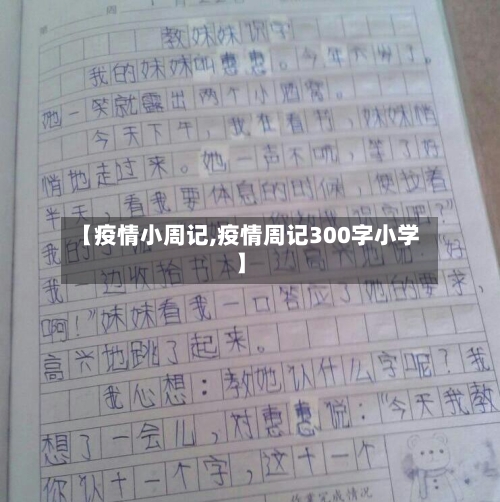 教妹妹识字
我的妹妹叫惠惠。今年六岁了。
她一笑就露出两个小酒窝。
今天下午，我在看书，妹妹悄
悄地走过来。她一声不吭，等了好
半天，看我要休息的时候，便拉着
我的
【疫情小周记,疫情周记300字小学
】
我一边收拾书本一边高兴地说："好
啊！"妹妹看我一口答应了她的要求，
高兴地跳了起来。
我心想：教她认什么字呢？我
想了一会儿，对惠惠说："今天我教
你认十一个字，这十一个